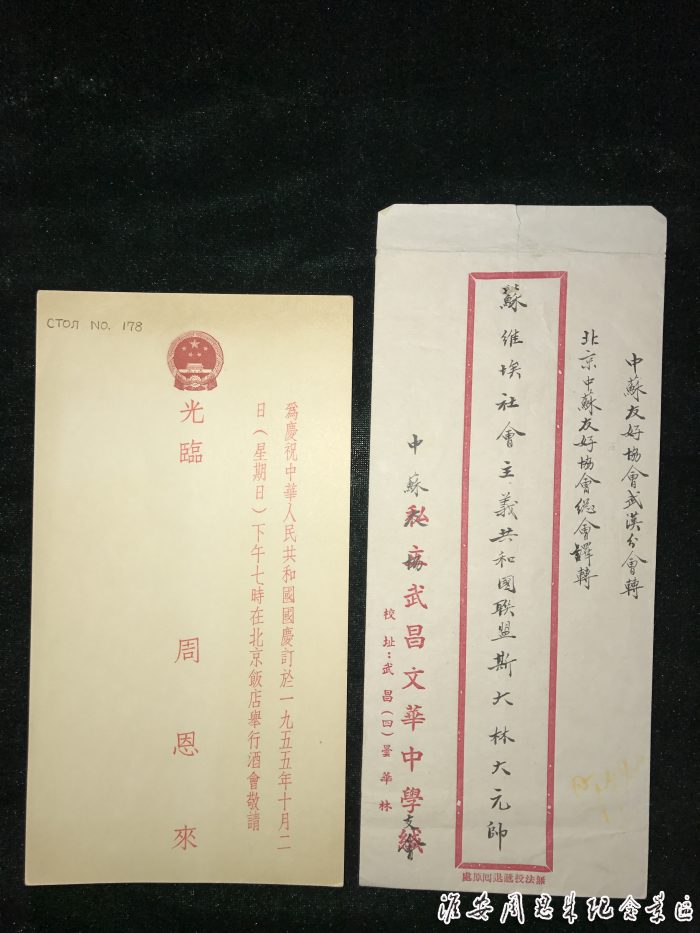 СТОЛ NO. 178
為慶祝中華人民共和國國慶訂於一九五五年十月二
日(星期日)下午七時在北京飯店舉行酒會敬請
光臨
周恩來
中蘇友好協會武漢分會轉
北京中蘇友好協會總會譯轉
蘇維埃社會主義共和國聯盟斯大林大元帥
中蘇友協
私立武昌文華中學
支會
校址:武昌(四)曇華林
無法投遞退回原處
淮安周恩来纪念景区